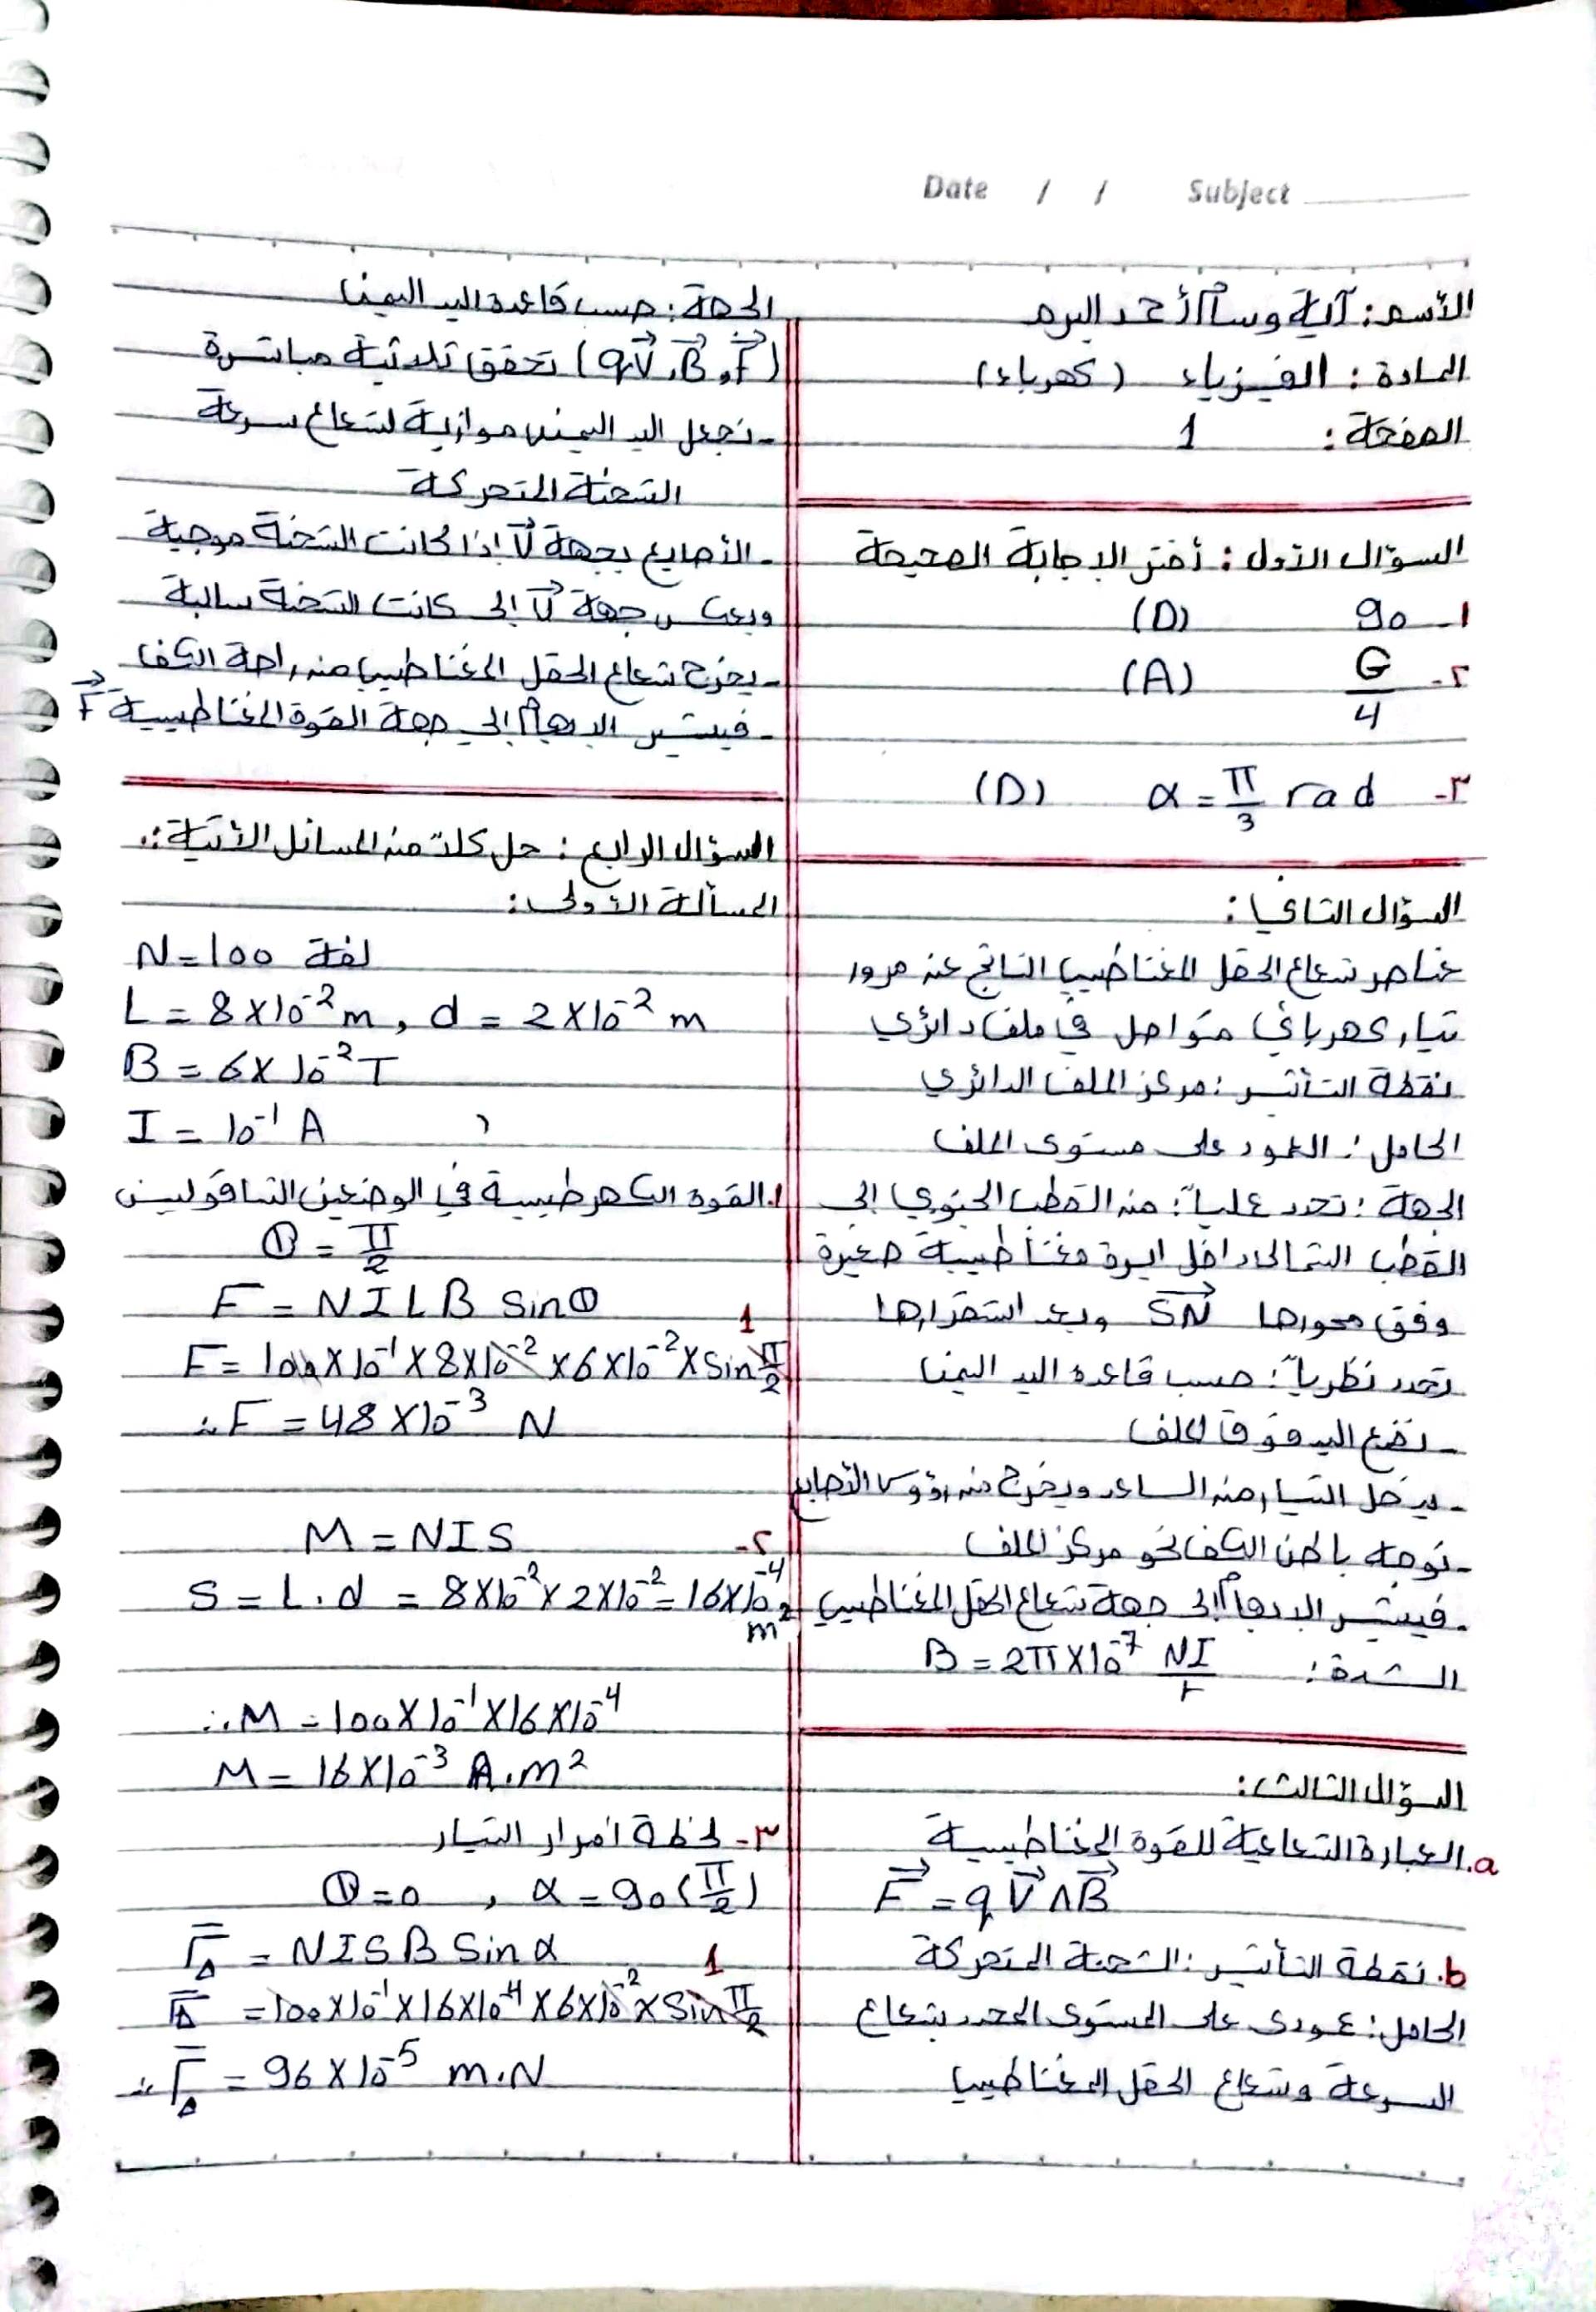 Date / / Subject
الأسم : آلية وسام أحمد البرم
المادة : الفيزياء (كهرباء)
الصفحة : 1
السؤال الأول : أختر الإجابة الصحيحة
١- 90 (D)
٢- G/4 (A)
٣- α = π/3 rad (D)
السؤال الثاني :
عناصر شعاع الحقل المغناطيسي الناتج عن مرور
تيار كهربائي متواصل في ملف دائري
نقطة التأثير : مركز الملف الدائري
الحامل : العمود على مستوى الملف
الجهة : تحدد عملياً : من القطب الجنوبي إلى
القطب الشمالي داخل ابرة مغناطيسية صغيرة
وفق محورها SN⃗ وبعد استقرارها
تحدد نظرياً : حسب قاعدة اليد اليمنى
- نضع اليد فوق الملف
- يدخل التيار من الساعد ويخرج من رؤوس الأصابع
- نوجه باطن الكف نحو مركز الملف
- فيشير الابهام إلى جهة شعاع الحقل المغناطيسي
الشدة : B = 2π×10⁻⁷ NI/r
السؤال الثالث :
a. العبارة الشعاعية للقوة المغناطيسية
F⃗ = qV⃗ ∧ B⃗
b. نقطة التأثير : الشحنة المتحركة
الحامل : عمودي على المستوى المحدد بشعاع
السرعة وشعاع الحقل المغناطيسي
الجهة : حسب قاعدة اليد اليمنى
(qV⃗, B⃗, F⃗) تحقق ثلاثية مباشرة
- نجعل اليد اليمنى موازية لشعاع سرعة
الشحنة المتحركة
- الأصابع بجهة V⃗ إذا كانت الشحنة موجبة
وبعكس جهة V⃗ إلى كانت الشحنة سالبة
- يخرج شعاع الحقل المغناطيسي من راحة الكف
- فيشير الابهام إلى جهة القوة المغناطيسية F⃗
السؤال الرابع : حل كلاً من المسائل الأتية :.
المسألة الأولى :
N = 100 لفة
L = 8×10⁻² m , d = 2×10⁻² m
B = 6×10⁻² T
I = 10⁻¹ A
١. القوة الكهرطيسية في الوضعين الشاقوليين
θ = π/2
F = NILB sinθ
1
F = 100×10⁻¹×8×10⁻²×6×10⁻²×sin π/2
∴ F = 48×10⁻³ N
٢- M = NIS
S = L.d = 8×10⁻²×2×10⁻² = 16×10⁻⁴ m²
∴ M = 100×10⁻¹×16×10⁻⁴
M = 16×10⁻³ A.m²
٣- لحظة امرار التيار
θ = 0 , α = 90 (π/2)
Γ̅Δ = NISB sinα
1
Γ̅Δ = 100×10⁻¹×16×10⁻⁴×6×10⁻²×sin π/2
∴ Γ̅Δ = 96×10⁻⁵ m.N